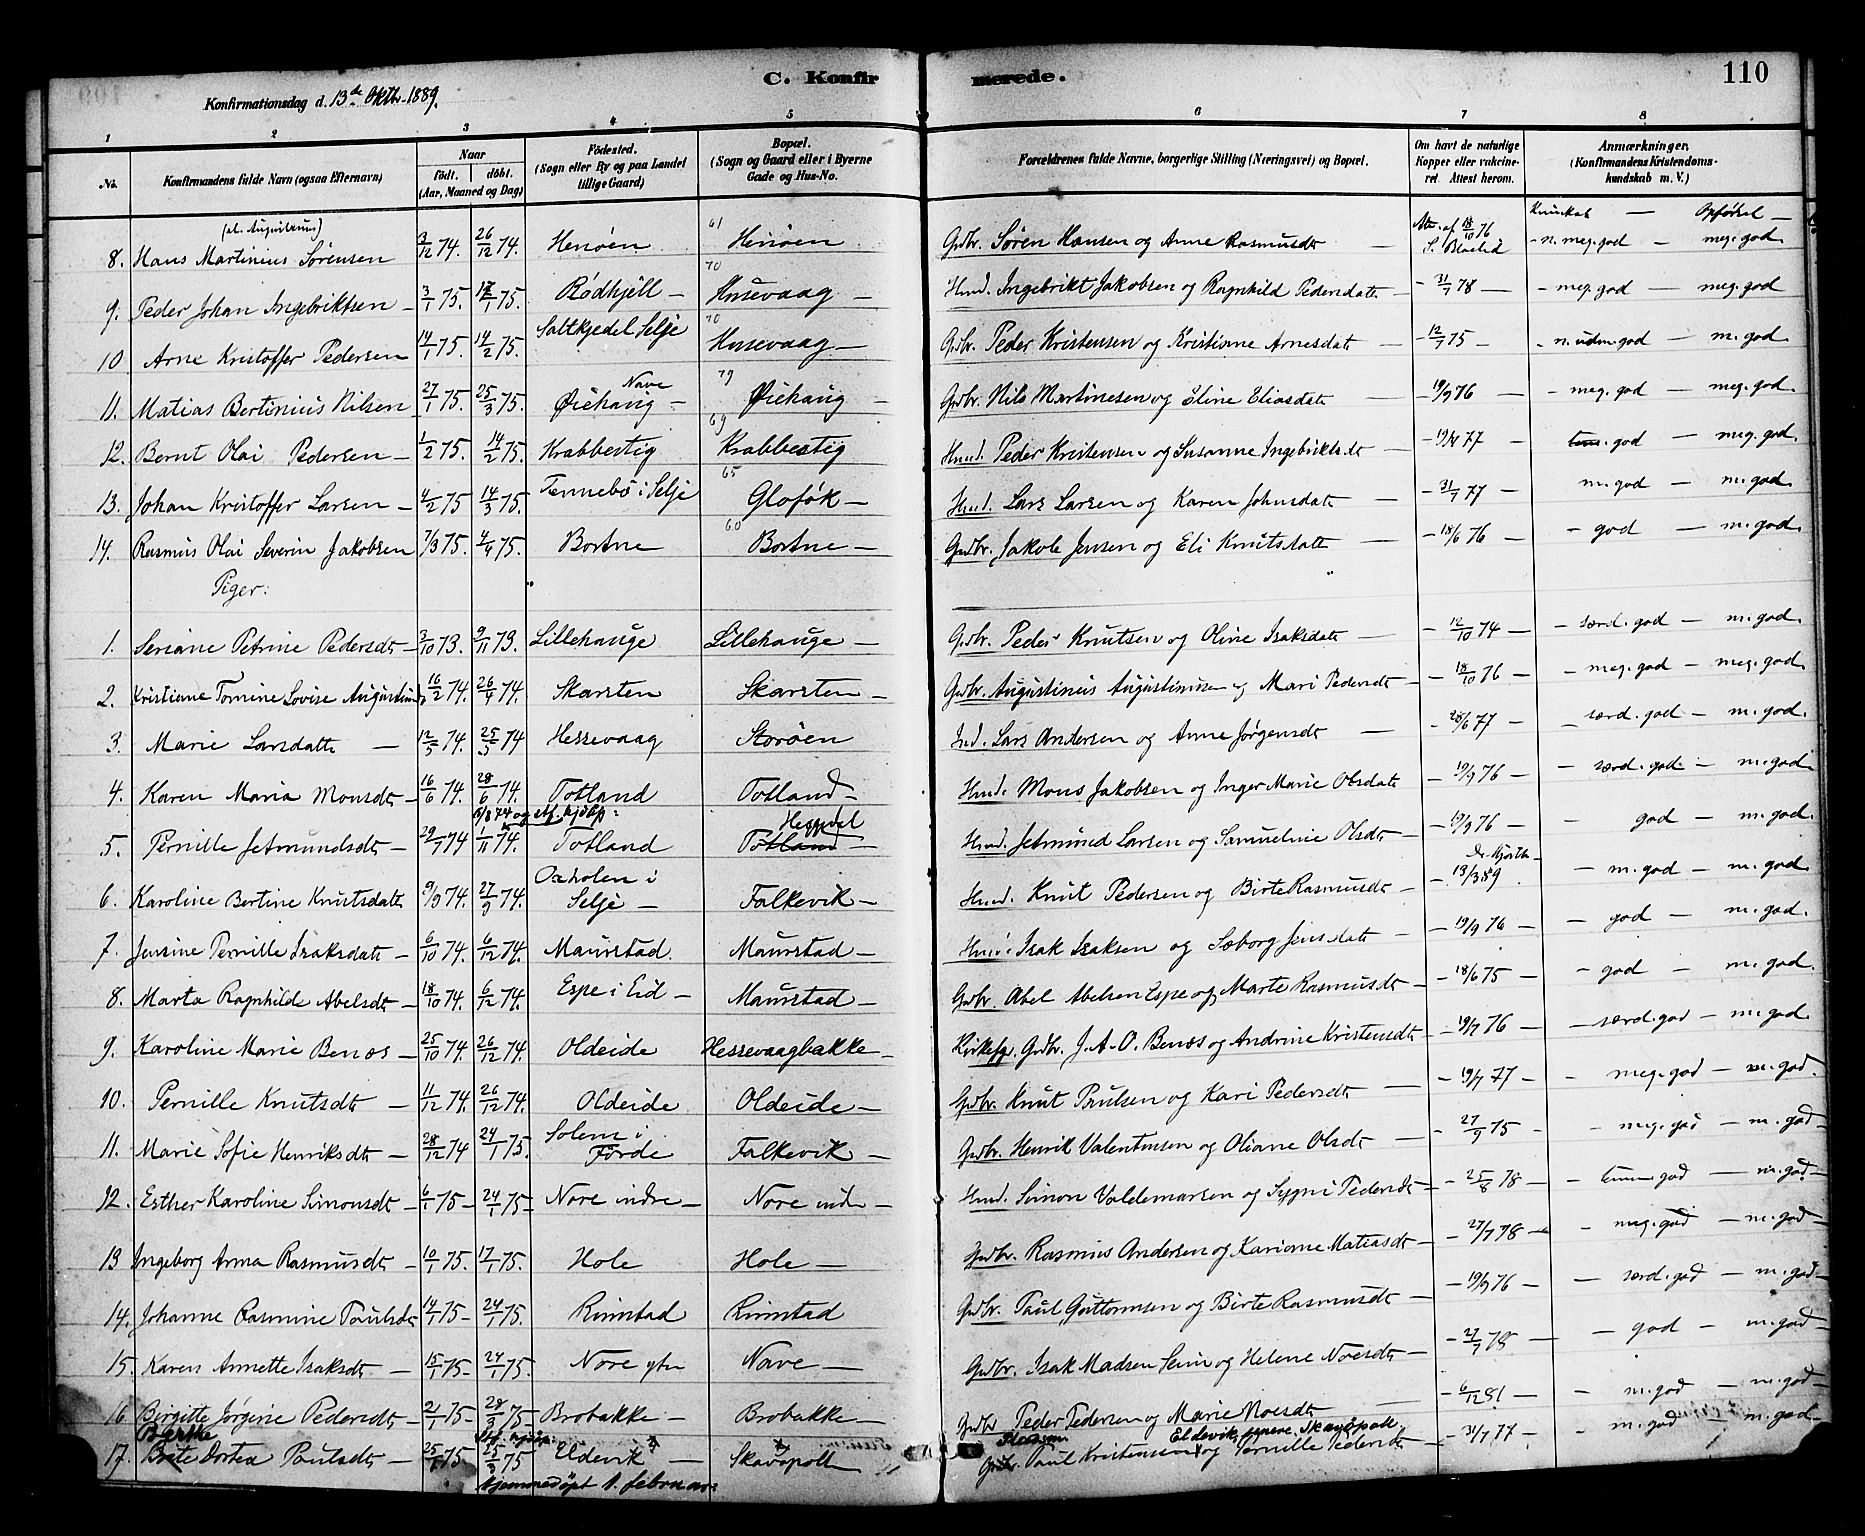 C. Konfirmerede.
110
Konfirmationsdag d. 13de Oktbr. 1889.
1 2 3 4 5 6 7 8
No. Konfirmandens fulde Navn (ogsaa Efternavn) Naar født. døbt. (Aar, Maaned og Dag) Fødested. (Sogn eller By og paa Landet tillige Gaard) Bopæl. (Sogn og Gaard eller i Byerne Gade og Hus-No. Forældrenes fulde Navne, borgerlige Stilling (Næringsvei) og Bopæl. Om havt de naturlige Kopper eller vakcineret. Attest herom. Anmærkninger, (Konfirmandens Kristendomskundskab m. V.)
Kunskab — Opførsel —
8. Hans Martinius Sørensen 3/12 74. 26/12 74. Henøen 61 Henøen Gdbr. Søren Hansen og Anne Rasmusdt — 76 - n. meg. god — meg. god
9. Peder Johan Ingebriktsen — 3/1 75. 75. Rødhjell — 70 Husevaag — Hmd. Ingebrikt Jakobsen og Ragnhild Pedersdatt - 31/7 78 — - meg. god — meg. god
10 Arne Kristoffer Pedersen 14/1 75. 14/2 75. Saltkjedel Selje 70 Husevaag — Gdbr. Peder Kristensen og Kristiane Arnesdatt - 12/7 75 — - n. uden. god — m. god.
11. Matias Bertinius Nilsen 27/1 75. 25/3 75. Øiehaug — Nave 79 Øiehaug — Gdbr. Nils Martinesen og Eline Eliasdatt — - 19/9 76 — - meg. god — meg. god.
12. Bernt Olai Pedersen — 1/2 75. 14/2 75. Krabbestig 69 Krabbestig Hmd. Peder Kristensen og Susanne Ingebriktsdt — - 77 — god — meg. god.
13. Johan Kristoffer Larsen — 4/2 75 14/3 75. Tennebø i Selje 65 Gloføk — Hmd. Lars Larsen og Karen Johnsdatt — - 31/7 77 — m. god — m. god.
14. Rasmus Olai Severin Jakobsen 7/3 75. 4/4 75. Bortne 60 Bortne — Gdbr. Jakob Jensen og Eli Knutsdatt — - 18/6 76 — - god — m. god.
Piger:
1. Seriane Petrine Pedersdt — 3/10 73. 9/11 73. Lillehauge Lillehauge — Gdbr. Peder Knutsen og Oline Isaksdatt — - 12/10 74 — - særd. god — m. god.
2. Kristiane Tomine Lovise Augustinusd. 16/2 74. 26/4 74. Skarsten Skarsten — Gdbr. Augustinus Augustinusen og Mari Pedersdt — - 18/10 76 — - meg. god — meg. god.
3. Marie Larsdatt — 12/5 74. 25/5 74 Hessevaag Storøen Ind. Lars Andersen og Anne Jørgensdt — - 28/6 77 — - særd. god — m. god.
4. Karen Maria Monsdt — 16/6 74. 28/6 74. Totland Totland — Hmd. Mons Jakobsen og Inger Marie Olsdatt - 19/9 76 — - særd. god — m. god.
Hessvel
5. Pernille Jetmundsdt — 29/7 74 1/11 74. Totland Totland — Hmd. Jetmund Larsen og Samueline Olsdt - 19/9 76 — - god — m. god.
6. Karoline Bertine Knutsdatt 9/9 74. 27/9 74. Oxholen i Selje — Falkevik — Hmd. Knut Pedersen og Birte Rasmusdt — - 13/3 89. - m. god — m. god
7. Jensine Pernille Isaksdatt — 6/10 74. 6/12 74. Maurstad. Maurstad — Hmd. Isak Isaksen og Søborg Jensdatt — - 19/9 76 — - god — m. god.
8. Marta Ragnhilde Abelsdt — 18/10 74. 6/12 74. Espe i Eid — Maurstad — Gdbr. Abel Abelsen Espe og Marte Rasmusdt — - 18/6 75 — - god — m. god.
9. Karoline Marie Benøs — 25/10 74. 26/12 74. Oldeide Hessevaagbakke — Kirkesgr. Gdbr. J. A. O. Benøs og Andrine Kristensdt — - 19/7 76 — - særd. god — m. god.
10. Pernille Knutsdt — 11/12 74. 26/12 74. Oldeide Oldeide — Gdbr. Knut Paulsen og Kari Pedersdt — - 19/7 77 — - meg. god — m. god.
11. Marie Sofie Henriksdt — 28/12 74 24/1 75. Solem i Førde Falkevik — Gdbr. Henrik Valentinsen og Oliane Olsdt — - 27/9 75 — - meg. god — m. god —
12. Esther Karoline Simonsdt — 6/1 75 — 24/1 75 — Nore indre — Nore ind — Hmd. Simon Valdemarsen og Sygni Pedersdt — - 25/8 78 — - god — m. god —
13 Ingeborg Anna Rasmusdt — 10/1 75. 17/1 75. Hole Hole — Gdbr. Rasmus Andersen og Kariane Matiasdt — - 27/7 78 — - meg. god — m. god —
14. Johanne Rasmine Paulsdt 14/1 75 — 24/1 75. Rimstad Rimstad Gdbr. Paul Guttormsen og Birte Rasmusdt — - 19/9 76 — - særd. god — m. god —
15. Karen Annette Isaksdt — 15/1 75 — 24/1 75. Nore ytre Nave — Gdbr. Isak Madsen Seim og Helene Noesdt — - 27/7 78 — - god — m. god —
16 Birgitte Jørgine Pedersdt — 21/1 75 — 28/3 75 — Brobakke — Brobakke — Gdbr Peder Pedersen og Marie Moesdt — - 6/12 81 — - m. god — m. god —
Eldevik, senere Skavøpoll.
17. Brite Dortea Paulsdt — 75. 25/3 75 Eldevik — Skavøpoll Gdbr. Paul Kristensen og Pernille Pedersdt — - 31/7 77 — - m. god — m. god —
hjemmedøpt 1. februar